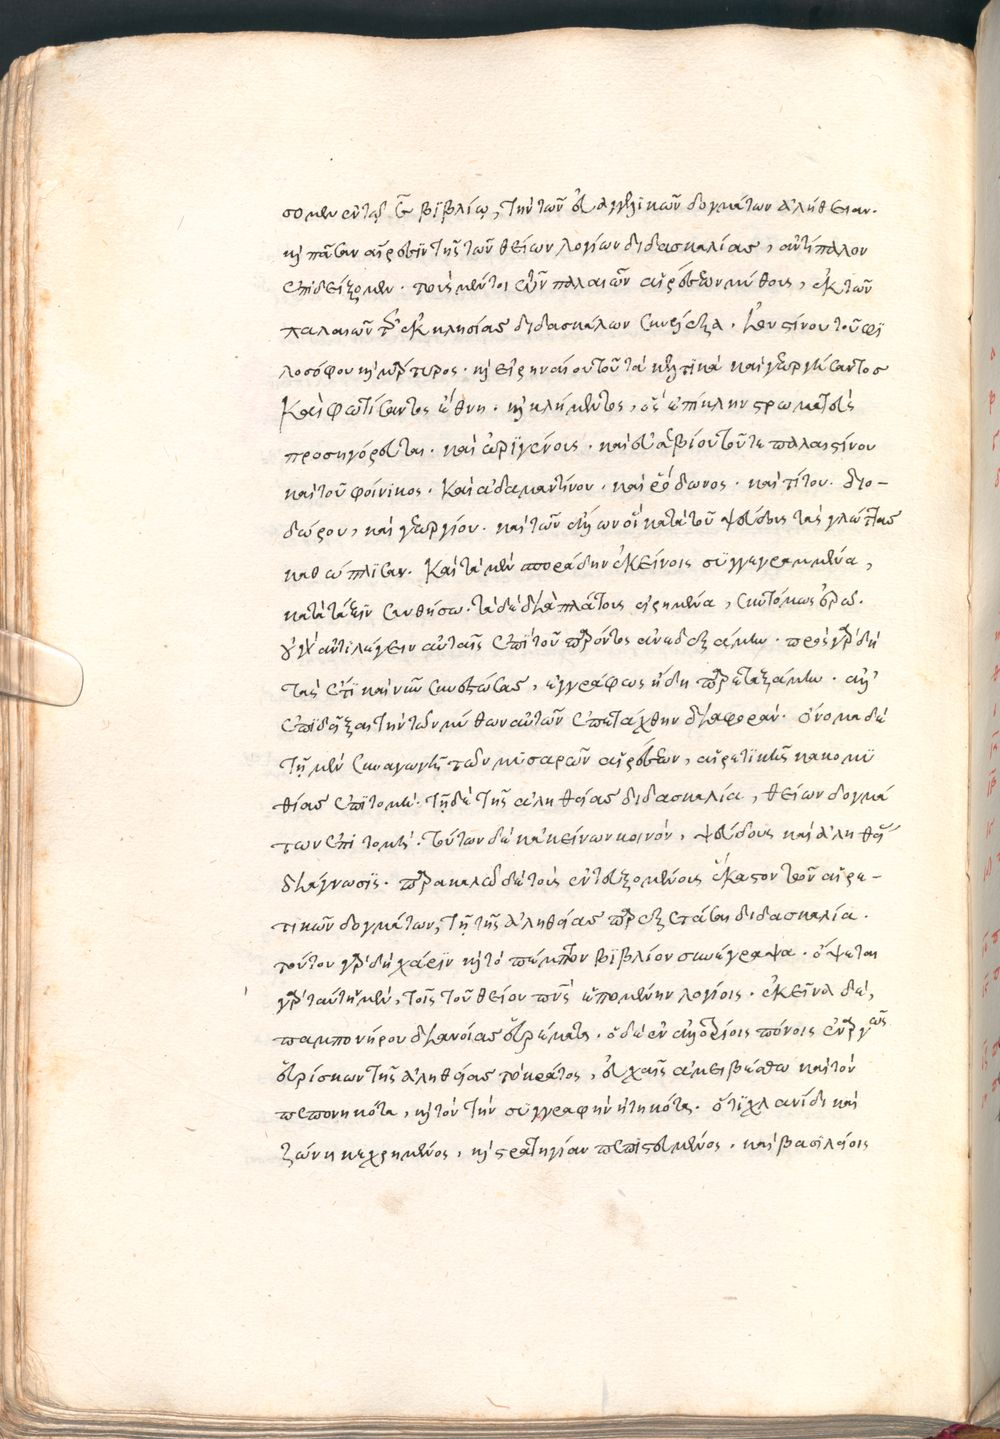 σομεν ἐν τῷ ε̄ω βιβλίῳ, τὴν τῶν εὐαγγελικῶν δογμάτων ἀλήθειαν.
καὶ πᾶσαν αἵρεσϊν τῆς τῶν θείων λογίων διδασκαλίας, ἀντίπαλον
ἐπιδείξομεν. τοὺς μέντοι τῶν παλαιῶν αἱρέσεων μύθους, ἐκ τῶν
παλαιῶν τῆς ἐκκλησίας διδασκάλων συνέλεξα. Ἰουστίνου τοῦ φϊ
λοσόφου καὶ μάρτυρος. καὶ εἰρηναίου τοῦ τὰ κελτικὰ καὶ γεωργήσαντος
Καὶ φωτίσαντος ἔθνη. καὶ κλήμεντος, ὃς ἐπίκλην στρωματεὺς
προσηγόρευται. καὶ ὠρϊγένους. καὶ εὐσεβίου τοῦ τε παλαιστίνου
καὶ τοῦ φοίνικος. Καὶ ἀδαμαντίνου. καὶ ῥόδωνος. καὶ τίτου. διο-
δώρου, καὶ γεωργίου. καὶ τῶν ἄλλων οἳ κατὰ τοῦ ψεύδους τὰς γλώττας
καθώπλϊσαν. Καὶ τὰ μὲν σποράδην ἐκείνοις συγγεγραμμένα,
κατὰ τάξϊν συνθήσω. τὰ δὲ διὰ πλάτους εἰρημένα, συντόμως ἐρῶ.
οὐ γὰρ ἀντιλέγειν αὐταῖς ἐπὶ τοῦ παρόντος ἀνεδεξάμην. πρὸς γὰρ δὴ
τὰς ἔτϊ καὶ νῦν συνεστώσας, ἐγγράφως ἤδη παρεταξάμην. ἀλλ'
ἐπιδεῖξαι τὴν τῶν μύθων αὐτῶν ἐπετάχθην διαφοράν. ὄνομα δὲ
τῇ μὲν συναγωγῇ τῶν μυσαρῶν αἱρέσεων, αἱρετικῆς κακομυ
θίας ἐπϊτομή. τῇ δὲ τῆς ἀληθείας διδασκαλία, θείων δογμά
των ἐπιτομή. τούτων δὲ κἀκείνων κοινόν, ψεύδους καὶ ἀληθείας
διάγνωσϊς. παρακαλῶ δὲ τοὺς ἐντευξομένους ἕκαστον τῶν αἱρε-
τικῶν δογμάτων, τῇ τῆς ἀληθείας παρεξετάσαι διδασκαλία.
τούτου γὰρ δὴ χάρϊν καὶ τὸ πέμπτον βϊβλίον συνέγραψα. ὄψεται
γὰρ ταύτην μὲν, τοῖς τοῦ θείου πνς ἑπομένην λογίοις. ἐκεῖνα δὲ,
παμπονήρου διανοίας εὑρέματα. ὁ δὲ ἐν ἀλλοτρίοις πόνοις ἐναργῶς
εὑρίσκων τῆς ἀληθείας τὸ κράτος, εὐχαῖς ἀμειβέσθω καὶ τὸν
πεπονηκότα, καὶ τὸν τὴν συγγραφὴν ᾐτηκότα. ὅτϊ χλανίδι καὶ
ζώνη κεχρημένος, καὶ στρατηγίαν πεπιστευμένος. καὶ βασϊλείοις